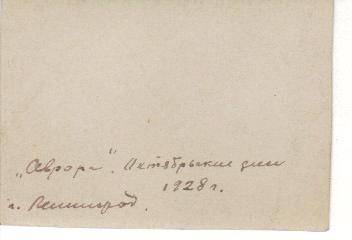 „Аврора". Октябрьские дни
1928 г.
г. Ленинград.